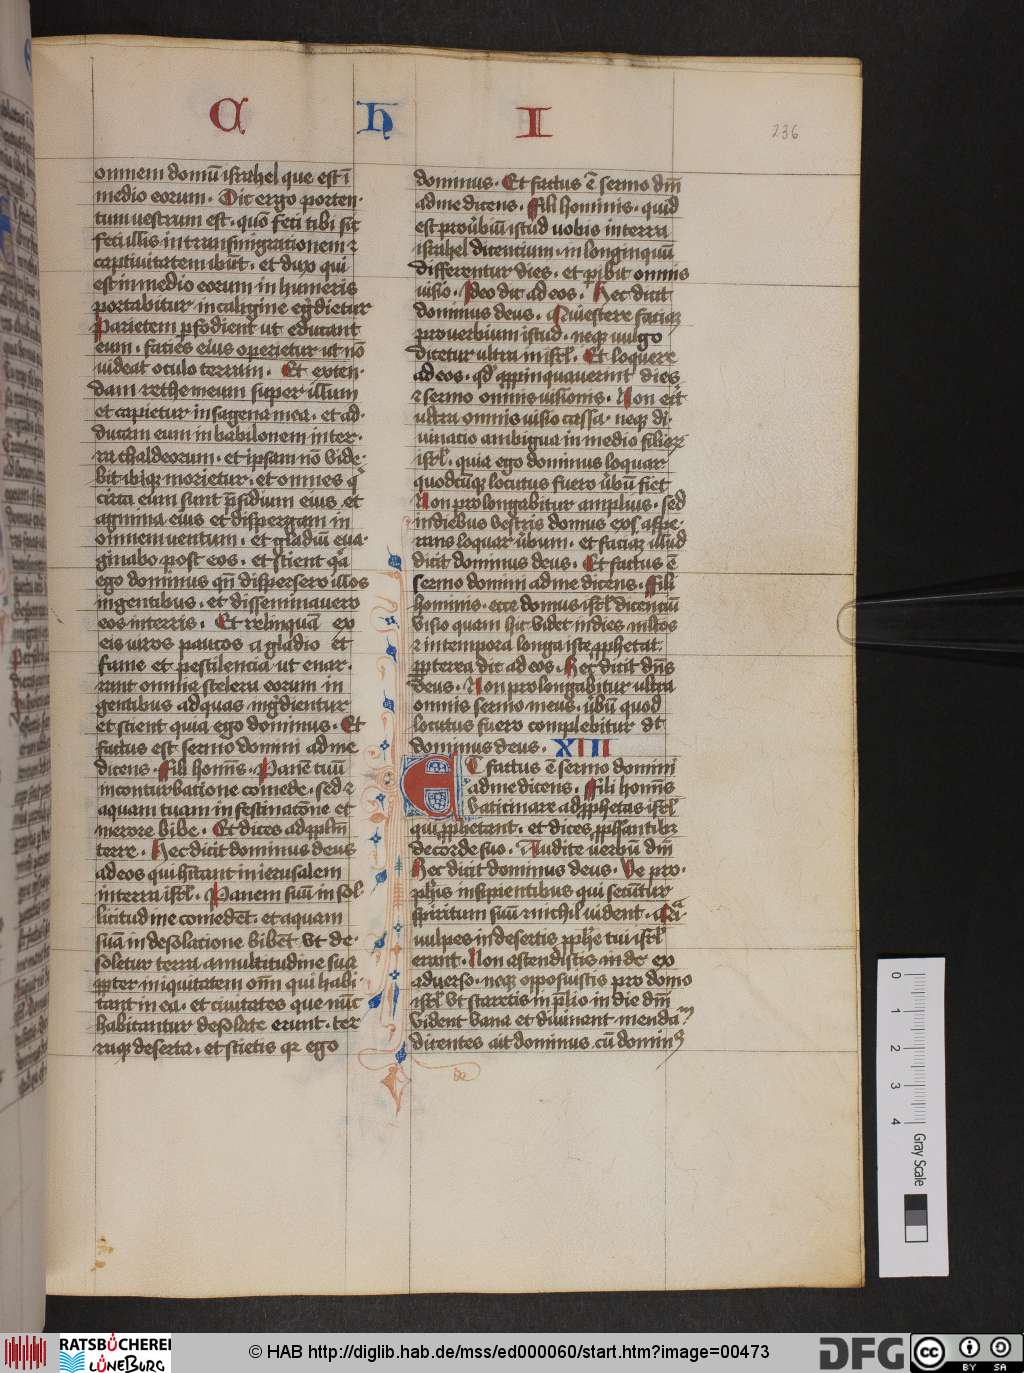 C h I
236
omnem domū israhel que est ī
medio eorum. Dic ergo porten-
tum uestrum est. quō feci tibi sic
feci illis in transmigrationem ⁊
captiuitatem ibūt. et dux qui
est in medio eorum in humeris
portabitur in caligine egdietur
Parietem pfodient ut educant
eum. facies eius operietur ut nō
uideat oculo terram. Et exten-
dam rethe meum super illum
et capietur in sagena mea. et ad-
ducam eum in babilonem in ter-
ra chaldeorum. et ipsam nō vide-
bit ibiqꝫ morietur. et omnes q
circa eum sunt p̄sidium eius et
agmina eius et dispergam in
omnem uentum. et gladiū eua-
ginabo post eos. et scient qa
ego dominus qn̄ dispersero illos
in gentibus. et disseminauero
eos in terris. Et relinquā ex
eis uiros paucos a gladio et
fame et pestilencia ut enar-
rent omnia scelera eorum in
gentibus ad quas ingdientur
et scient quia ego dominus. Et
factus est sermo domini ad me
dicens. Fili homīs. Panē tuū
in conturbatione comede. sed ⁊
aquam tuam in festinacōne et
merore bibe. Et dices ad pplm̄
terre. Hec dicit dominus deus
ad eos qui hitant in ierusalem
in terra isrl. Panem suū in sol-
licitudine comedēt. et aquam
suā in desolacione bibēt. vt de-
soletur terra a multitudine sua
ppter iniquitatem om̄ qui habi-
tant in ea. et ciuitates que nūc
habitantur desolate erunt. ter-
raqꝫ deserta. et scietis qꝛ ego
dominus. Et factus ē sermo dn̄i
ad me dicens. Fili hominis. quid
est prouerbiū istud uobis in terra
israhel dicentium. in longinquū
differentur dies. et pibit omnis
uisio. Ideo dic ad eos. Hec dicit
dominus deus. Quiescere faciaꝫ
prouerbium istud. neqꝫ uulgo
dicetur ultra in isrl. Et loquere
ad eos. qd appinquauerint dies
⁊ sermo omnis uisionis. Non eīt
ultra omnis uisio cassa. neqꝫ di-
uinatio ambigua in medio filioꝝ
isrl. quia ego dominus loquar
quodcūqꝫ locutus fuero ūbū fiet
Non prolongabitur amplius. sed
in diebus vestris domus exaspe-
rans loquar ūbum. et faciaꝫ illud
dicit dominus deus. Et factus ē
sermo domini ad me dicens. Fili
hominis. ecce domus isrl dicenciū
visio quam hic videt in dies mltos
⁊ in tempora longa iste pphetat.
ppterea dic ad eos. Hec dicit dn̄s
deus. Non prolongabitur ultra
omnis sermo meus. ūbū quod
locutus fuero complebitur dt
dominus deus. XIII
ET factus ē sermo domini
ad me dicens. Fili homīs
vaticinare ad pphetas isrl
qui pphetant. et dices pphantibꝫ
de corde suo. Audite uerbū dn̄i
Hec dicit dominus deus. Ve pro-
phis insipientibus qui secūtur
spiritum suū ⁊ nichil uident. Qͣi
uulpes in desertis pphe tui isrl
erant. Non ascendistis inde ex
aduerso. neqꝫ opposuistis pro domo
isrl vt staretis in p̄lio in die dn̄i
Vident vana et diuinant mendaᵐ
dicentes ait dominus. cū dominꝰ
0 1 2 3 4
Gray Scale
RATSBÜCHEREI
LÜNEBURG
© HAB http://diglib.hab.de/mss/ed000060/start.htm?image=00473
DFG
cc BY SA